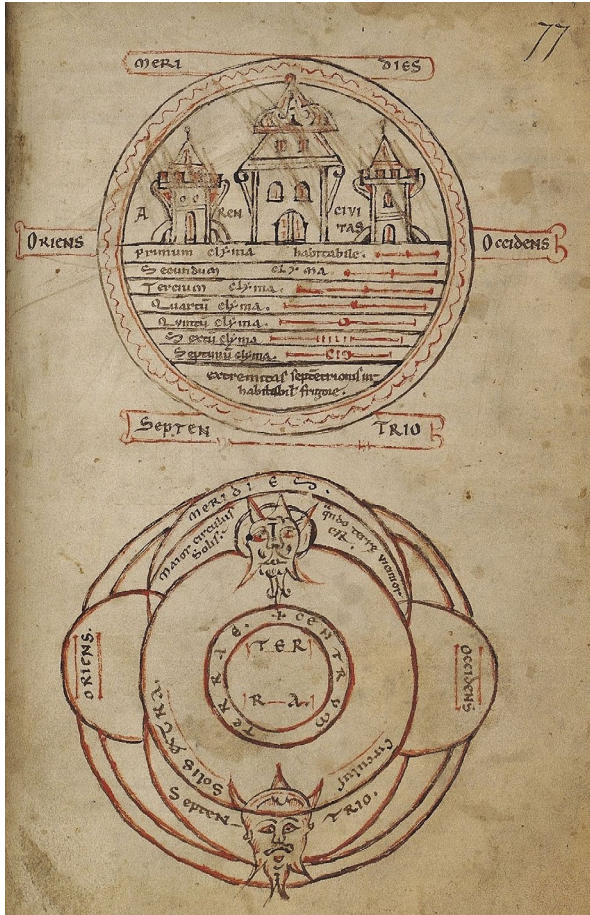 77
MERI DIES
A REN CIVI
TAS
ORIENS
OccidENS
primum clyma habitabile.
Secundum clyma.
Tercium clyma.
Quartū clyma.
Quintū clyma.
Sextū clyma
Septimū clyma.
extremitas septētrionis
habitabil' frigore.
SEPTEN TRIO
MERIDIES.
Maior circulus
Solis.
qndo terre vicinior
est.
ORIENS.
OCCIDENS
TERRE. + CENTRUM
TER
RA.
Circulus
SEPTEN TRIO.